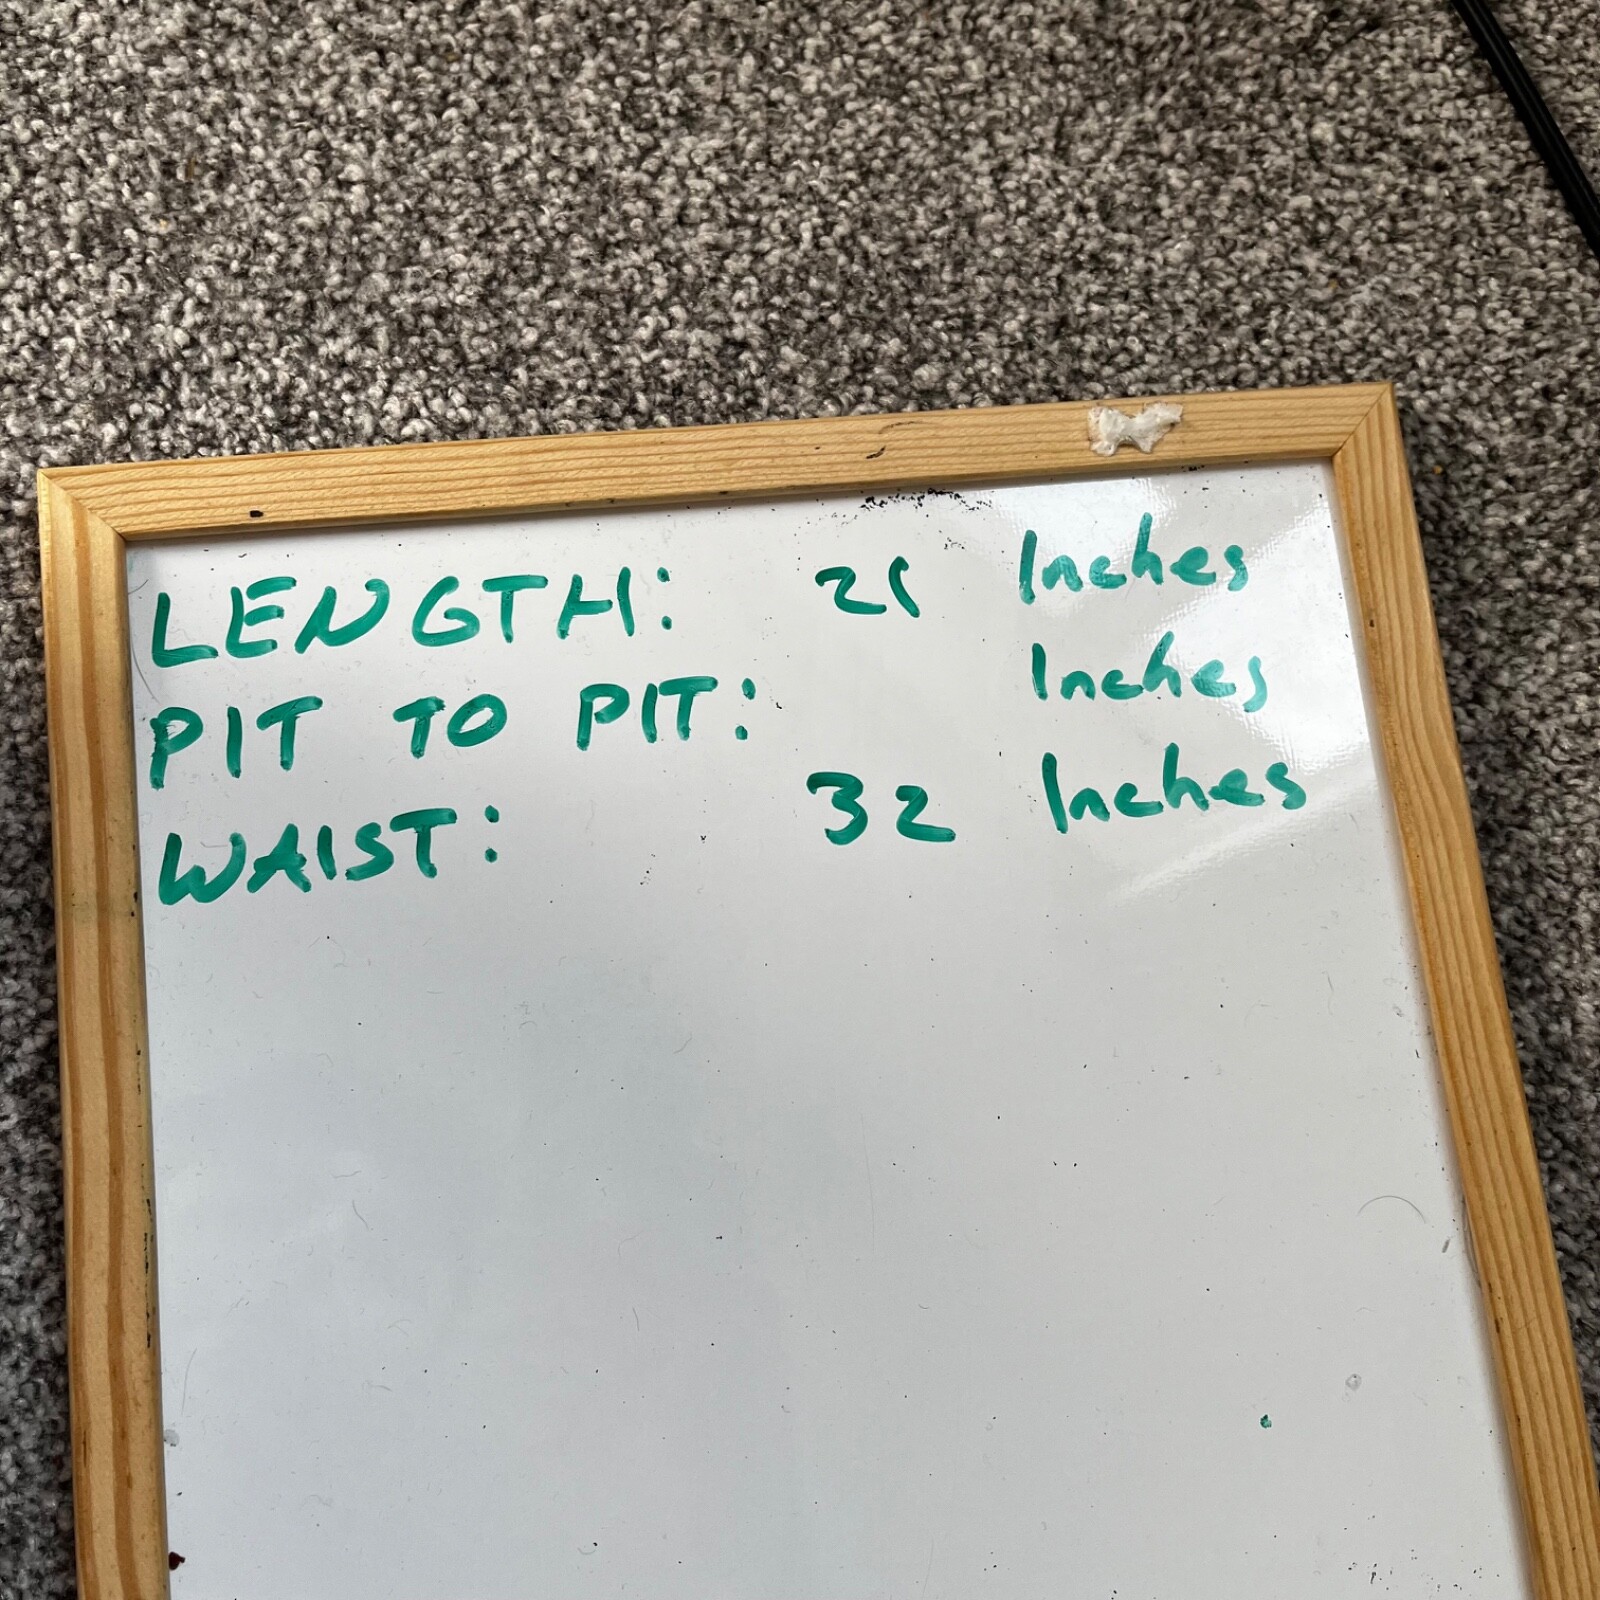 LENGTH: 21 Inches
PIT TO PIT: Inches
WAIST: 32 Inches